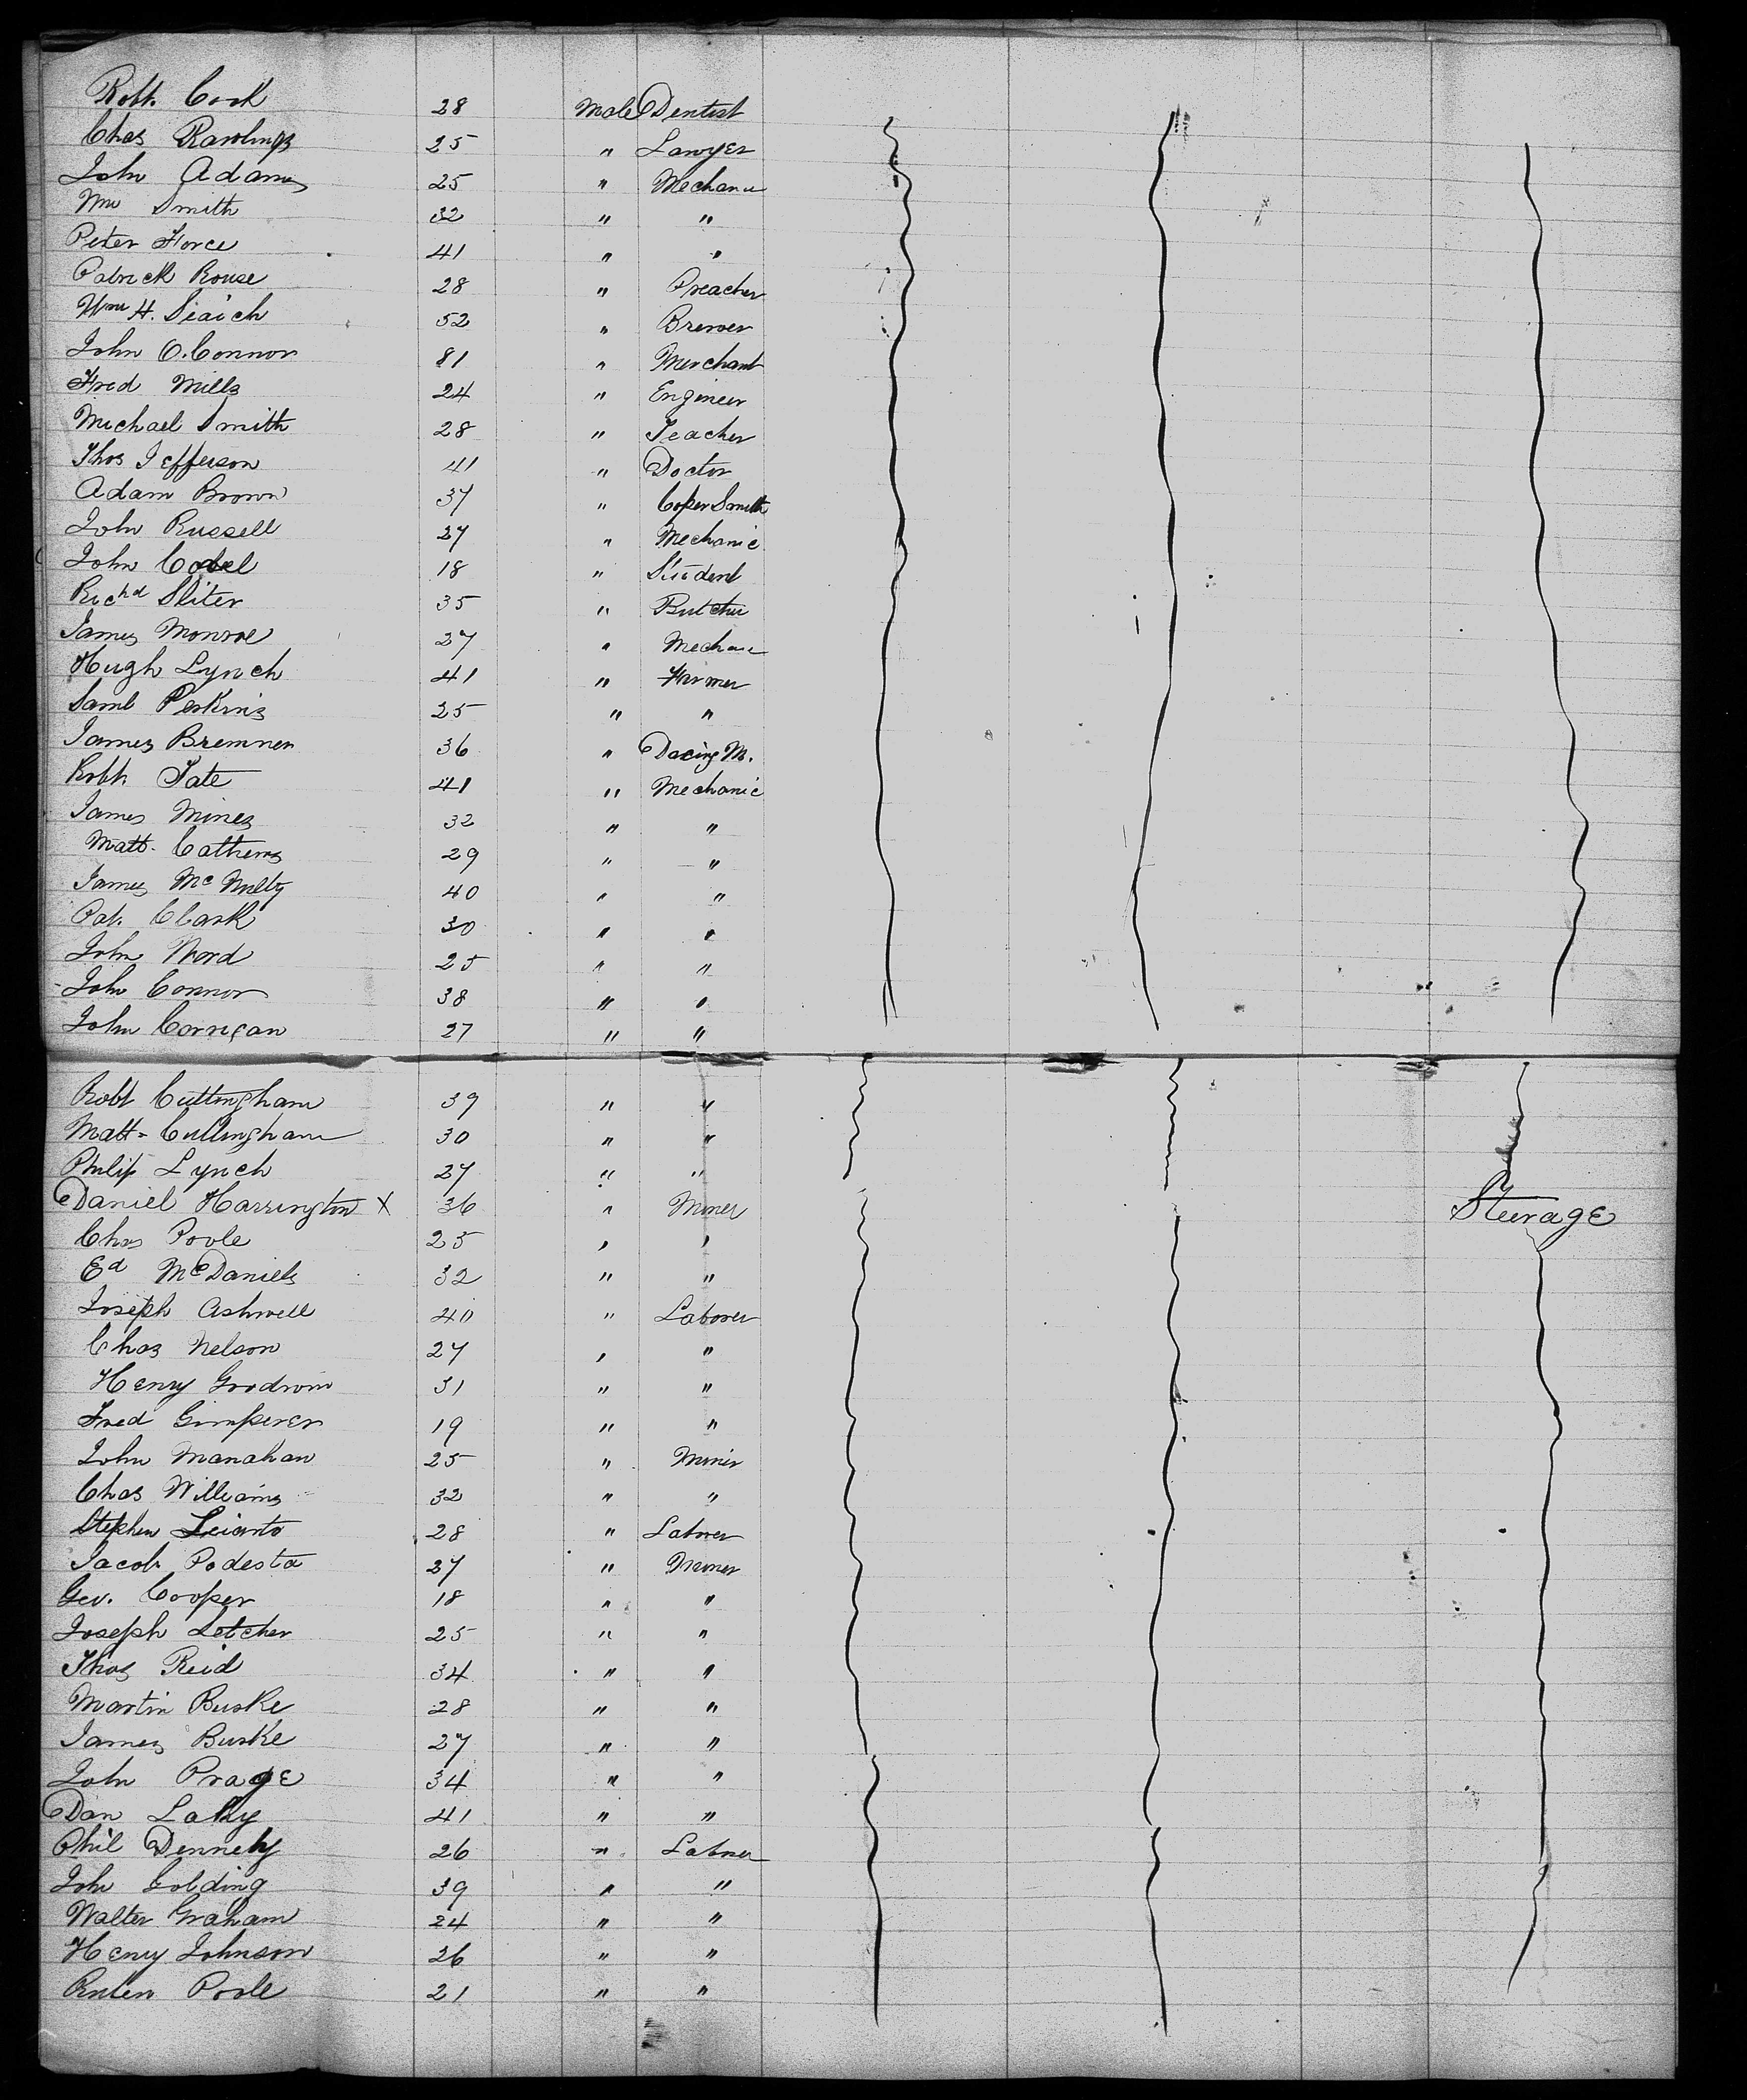 Robt. Cook 28 Male Dentist
Chas Rawlings 25 " Lawyer
John Adams 25 " Mechanic
Wm Smith 32 " "
Peter Force 41 " "
Patrick Rouse 28 " Preacher
Wm H. 52 " Brewer
John O.Connor 81 " Merchant
Fred Mills 24 " Engineer
Michael Smith 28 " Teacher
Thos Jefferson 41 " Doctor
Adam Brown 37 " Coper Smith
John Russell 27 " Mechanic
John 18 " Student
Richd Sliter 35 " Butcher
James Monroe 27 " Mechanic
Hugh Lynch 41 " Farmer
Saml Perkins 25 " "
James Bremner 36 " M.
Robt. Tate 41 " Mechanic
James Mines 32 " "
Matt. Cathers 29 " "
James Mc 40 " "
Pat. Clark 30 " "
John Ward 25 " "
John Connor 38 " "
John Corrigan 27 " "
Robt Cuttingham 39 " "
Matt- Cullingham 30 " "
Philip Lynch 27 " "
Daniel Harrington X 36 " Miner Steerage
Chas Poole 25 " "
Ed McDaniels 32 " "
Joseph Ashwell 40 " Laborer
Chas Nelson 27 " "
Henry Goodwin 31 " "
Fred Gimperer 19 " "
John Manahan 25 " Miner
Chas Williams 32 " "
Stephen 28 " Laborer
Jacob Podesta 27 " Miner
Geo. Cooper 18 " "
Joseph Letcher 25 " "
Thos Reid 34 " "
Martin Burke 28 " "
James Burke 27 " "
John Prage 34 " "
Dan 41 " "
Phil Dennehy 26 " Laborer
John Golding 39 " "
Walter Graham 24 " "
Henry Johnson 26 " "
Poole 21 " "